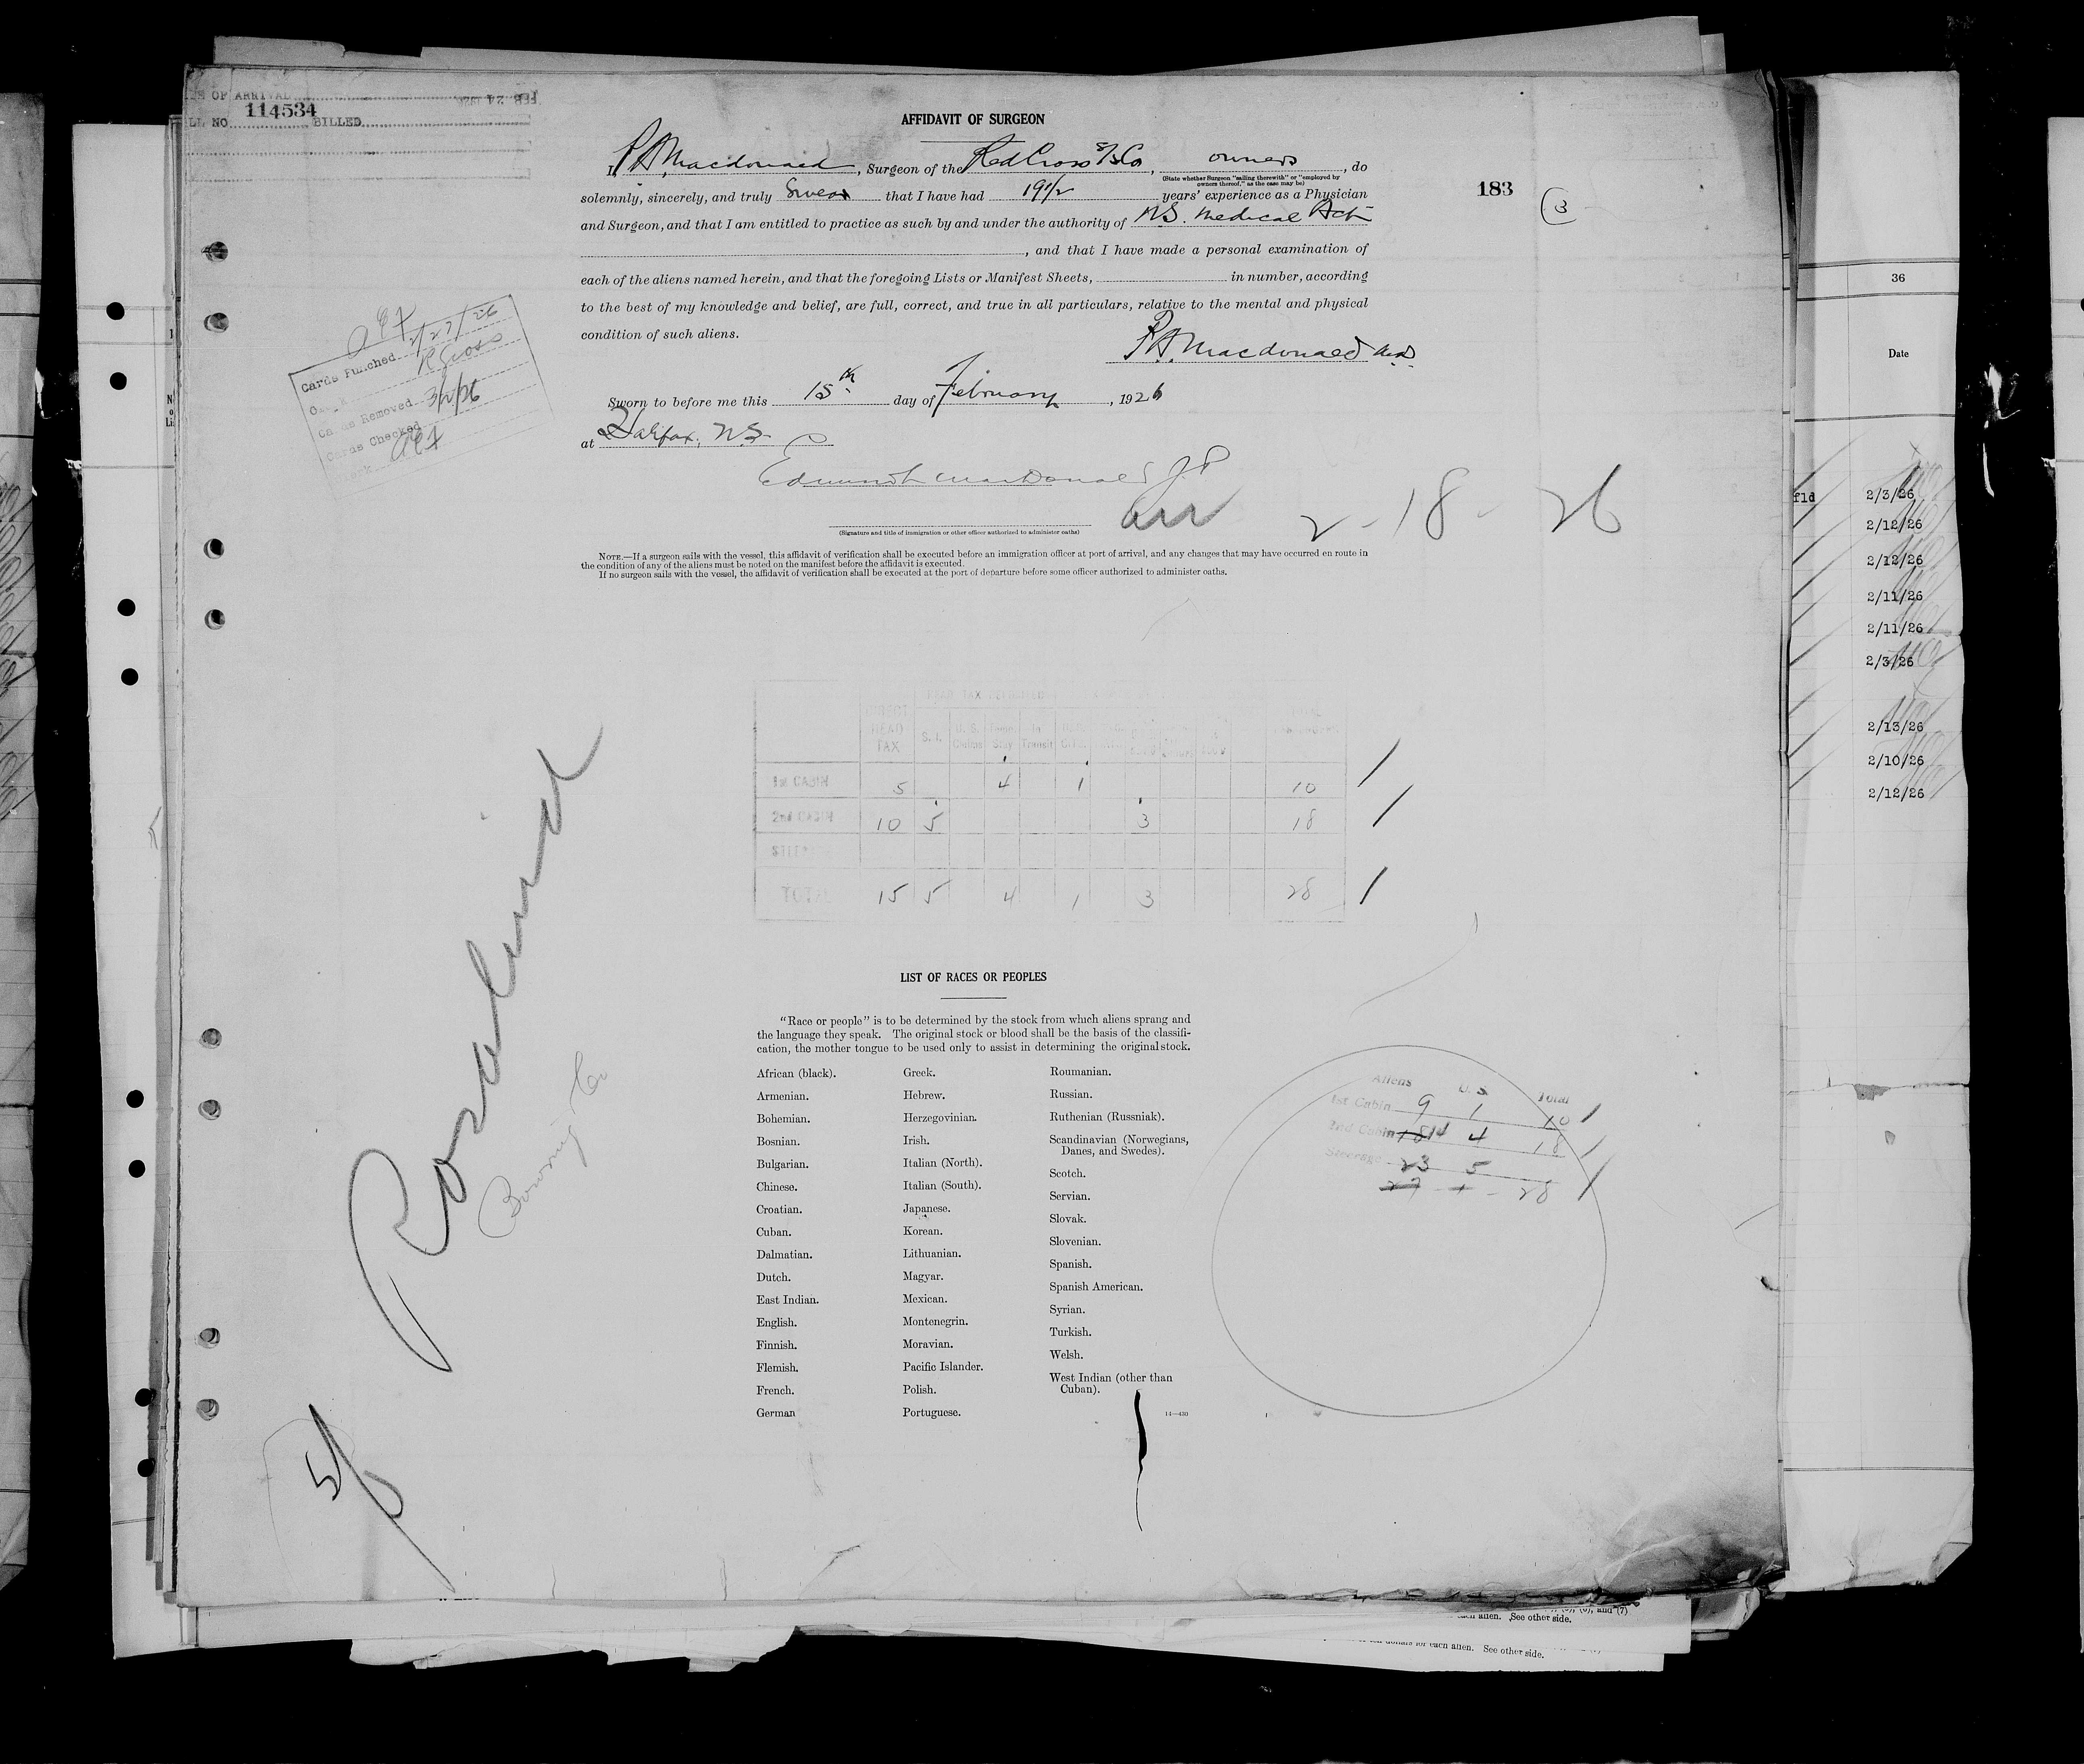 OF ARRIVAL
114534
LL NO. BILLED
AFFIDAVIT OF SURGEON
I, Macdonald, Surgeon of the Red Cross S/S Co, owners, do
(State whether Surgeon "sailing therewith" or "employed by
owners thereof," as the case may be)
solemnly, sincerely, and truly swear that I have had 19 1/2 years' experience as a Physician
183
3
and Surgeon, and that I am entitled to practice as such by and under the authority of N.S. Medical Act
, and that I have made a personal examination of
each of the aliens named herein, and that the foregoing Lists or Manifest Sheets, in number, according
to the best of my knowledge and belief, are full, correct, and true in all particulars, relative to the mental and physical
condition of such aliens.
Macdonald
Sworn to before me this 15th day of February, 1926
at Halifax, N.S.
Edmund MacDonald J.P.
arr 2-18-26
(Signature and title of immigration or other officer authorized to administer oaths)
NOTE.—If a surgeon sails with the vessel, this affidavit of verification shall be executed before an immigration officer at port of arrival, and any changes that may have occurred en route in
the condition of any of the aliens must be noted on the manifest before the affidavit is executed.
If no surgeon sails with the vessel, the affidavit of verification shall be executed at the port of departure before some officer authorized to administer oaths.
Cards Punched
Cards Removed 3/2/26
Cards Checked
Rosalind
Bowring Co
DIRECT HEAD TAX S.I. U.S. Claims Temp. Stay In Transit TOTAL
1st CABIN 5 4 1 10
2nd CABIN 10 5 3 18
TOTAL 15 5 4 1 3 28
LIST OF RACES OR PEOPLES
"Race or people" is to be determined by the stock from which aliens sprang and
the language they speak. The original stock or blood shall be the basis of the classifi-
cation, the mother tongue to be used only to assist in determining the original stock.
African (black).
Armenian.
Bohemian.
Bosnian.
Bulgarian.
Chinese.
Croatian.
Cuban.
Dalmatian.
Dutch.
East Indian.
English.
Finnish.
Flemish.
French.
German
Greek.
Hebrew.
Herzegovinian.
Irish.
Italian (North).
Italian (South).
Japanese.
Korean.
Lithuanian.
Magyar.
Mexican.
Montenegrin.
Moravian.
Pacific Islander.
Polish.
Portuguese.
Roumanian.
Russian.
Ruthenian (Russniak).
Scandinavian (Norwegians,
Danes, and Swedes).
Scotch.
Servian.
Slovak.
Slovenian.
Spanish.
Spanish American.
Syrian.
Turkish.
Welsh.
West Indian (other than
Cuban).
14—430
Aliens U.S. Total
1st Cabin 9 1 10
2nd Cabin 18 14 4 18
Steerage 23 5
27 1 28
36
Date
fld 2/3/26
2/12/26
2/12/26
2/11/26
2/11/26
2/3/26
2/13/26
2/10/26
2/12/26
and (7)
each alien. See other side.
for each alien. See other side.